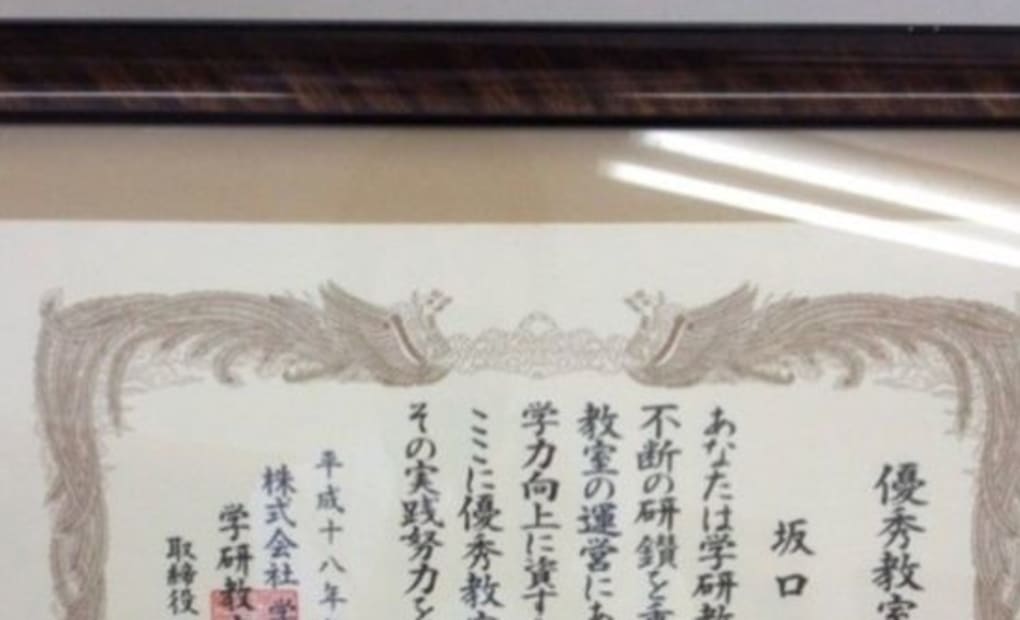 優秀教室
坂口
あなたは学研教
不断の研鑽を重
教室の運営にあ
学力向上に資す
ここに優秀教室
その実践努力を
平成十八年
株式会社学
学研教
取締役